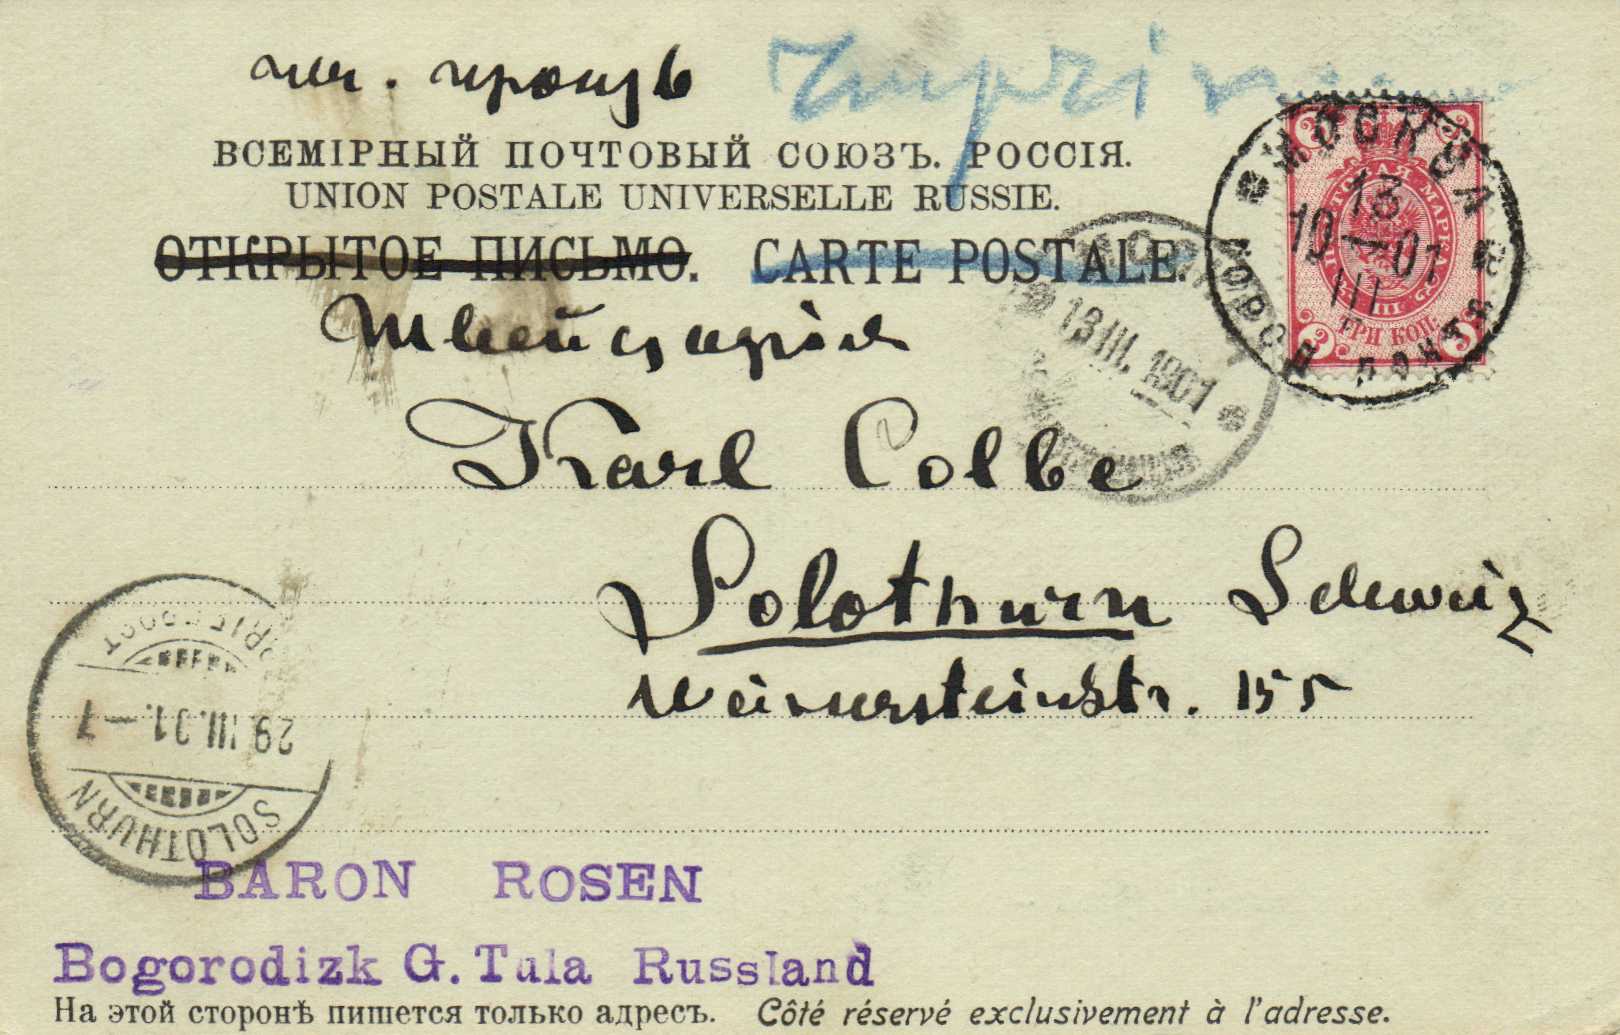 печ. произв Imprim
ВСЕМІРНЫЙ ПОЧТОВЫЙ СОЮЗЪ. РОССІЯ.
UNION POSTALE UNIVERSELLE RUSSIE.
ОТКРЫТОЕ ПИСЬМО. CARTE POSTALE.
Швейцарія
Karl Colbe
Solothurn Schweiz
Weissensteinstr. 155
МОСКВА
13
10 — 01
III
ГОРОД. ПОЧТА
3 3
ПОЧТОВАЯ МАРКА
ТРИ КОП.
3 3
13 III. 1901
BRIEFPOST
29. III. 01. – 7
SOLOTHURN
BARON ROSEN
Bogorodizk G. Tula Russland
На этой сторонѣ пишется только адресъ. Côté réservé exclusivement à l'adresse.